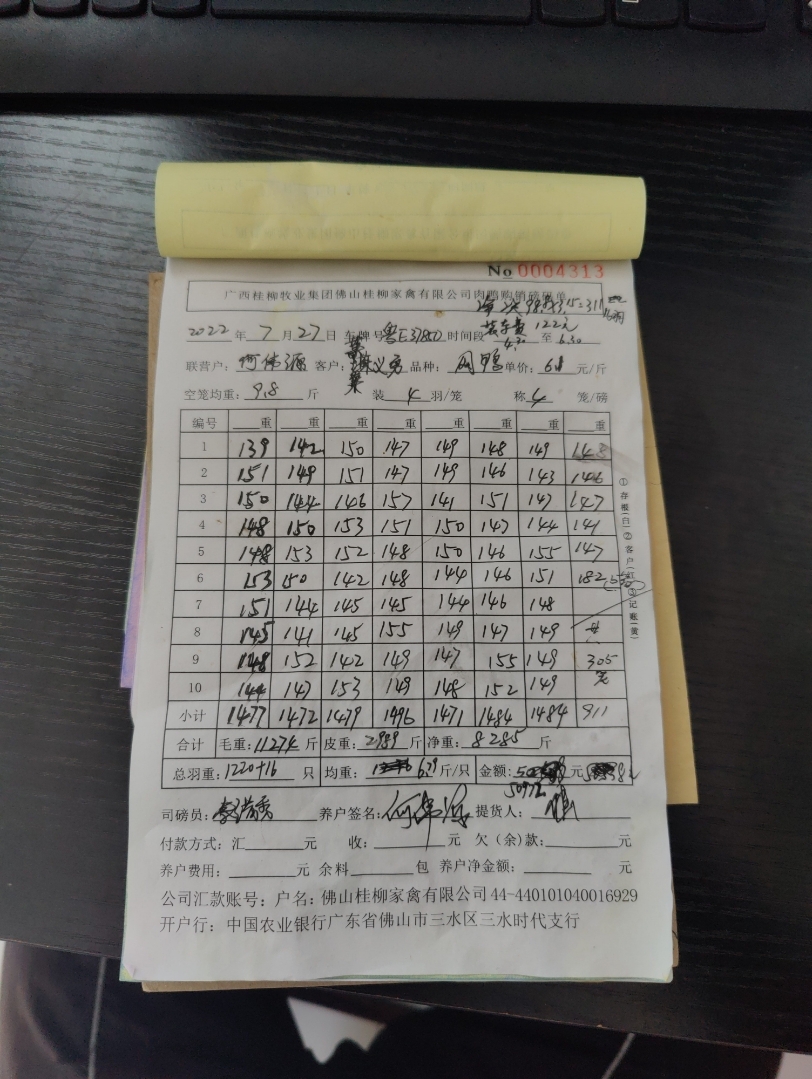 No 0004313
广西桂柳牧业集团佛山桂柳家禽有限公司肉鸭购销磅码单
装车费 122元
2022年 7月27日 车牌号 粤E 时间段 4.30 至 6.30
联营户：何伟源 客户： 义勇 品种： 鸭 单价： 元/斤
空笼均重：9.8 斤 装 4 羽/笼 称 4 笼/磅
编号 重 重 重 重 重 重 重 重
1 139 142 150 147 149 148 149 148
2 151 149 151 147 149 146 143 146
3 150 144 146 157 141 151 147 147
4 148 150 153 151 150 147 144 141
5 148 153 152 148 150 146 155 147
6 153 150 142 148 144 146 151 182
7 151 144 145 145 144 146 148
8 145 141 145 155 149 147 149 共
9 148 152 142 149 147 155 149 305
10 144 147 153 149 148 152 149 笼
小计 1477 1472 1479 1496 1471 1484 1484 911
合计 毛重：11274 斤 皮重：2989 斤 净重：8285 斤
总羽重：1220+16 只 均重： 6.79 斤/只 金额： 元
50972
司磅员： 养户签名：何伟源 提货人：
付款方式：汇 元 收： 元 欠（余）款： 元
养户费用： 元 余料 包 养户净金额： 元
公司汇款账号：户名：佛山桂柳家禽有限公司 44-440101040016929
开户行：中国农业银行广东省佛山市三水区三水时代支行
①存根(白)②客户(红)③记账(黄)